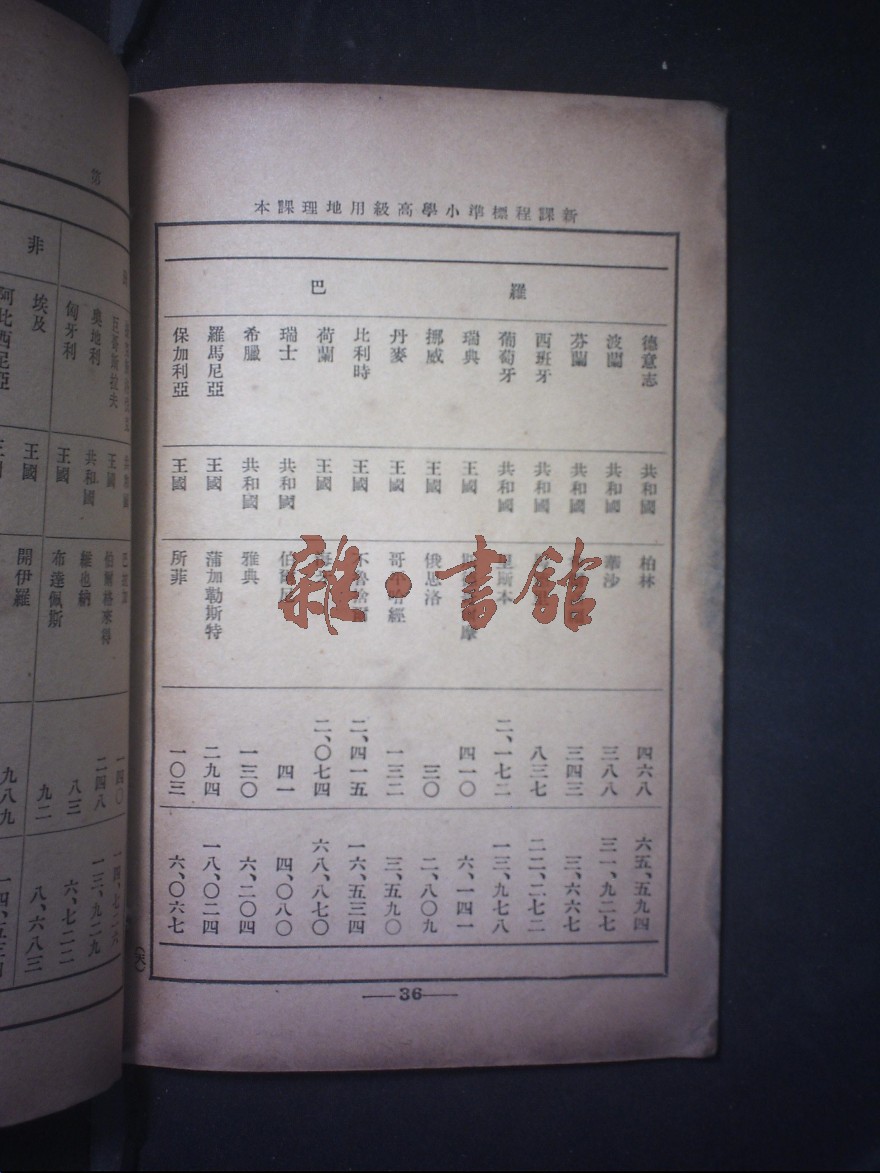 新課程標準小學高級用地理課本
羅 巴
德意志 共和國 柏林 四六八 六五、五九四
波蘭 共和國 華沙 三八八 三一、九二七
芬蘭 共和國 三四三 三、六六七
西班牙 共和國 八三七 二二、二七二
葡萄牙 共和國 里斯本 二、一七二 一三、九七八
瑞典 王國 摩 四一〇 六、一四一
挪威 王國 俄思洛 三〇 二、八〇九
丹麥 王國 哥本哈經 一三二 三、五九〇
比利時 王國 不魯舍爾 二、四一五 一六、五三四
荷蘭 王國 二、〇七四 六八、八七〇
瑞士 共和國 四一 四、〇八〇
希臘 共和國 雅典 一三〇 六、二〇四
羅馬尼亞 王國 蒲加勒斯特 二九四 一八、〇二四
保加利亞 王國 所菲 一〇三 六、〇六七
36
雜·書館
第
非
斯拉夫 王國 伯爾格來得 二四八 一三、九二九
奧地利 共和國 維也納 八三 六、七二二
匈牙利 王國 布達佩斯 九二 八、六八三
埃及 王國 開伊羅 九八九
阿比西尼亞 王國